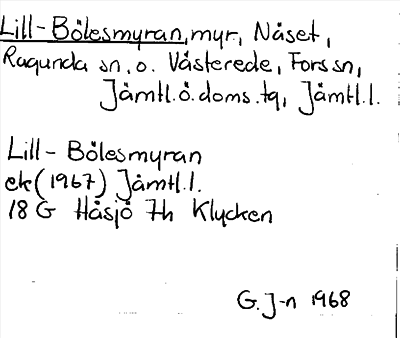 Lill-Bölesmyran, myr, Näset,
Ragunda sn, o. Västerede, Fors sn,
Jämtl.ö.doms.tg, Jämtl.l.
Lill-Bölesmyran
ek (1967) Jämtl.l.
18 G Håsjö 7h Klycken
G. J-n 1968